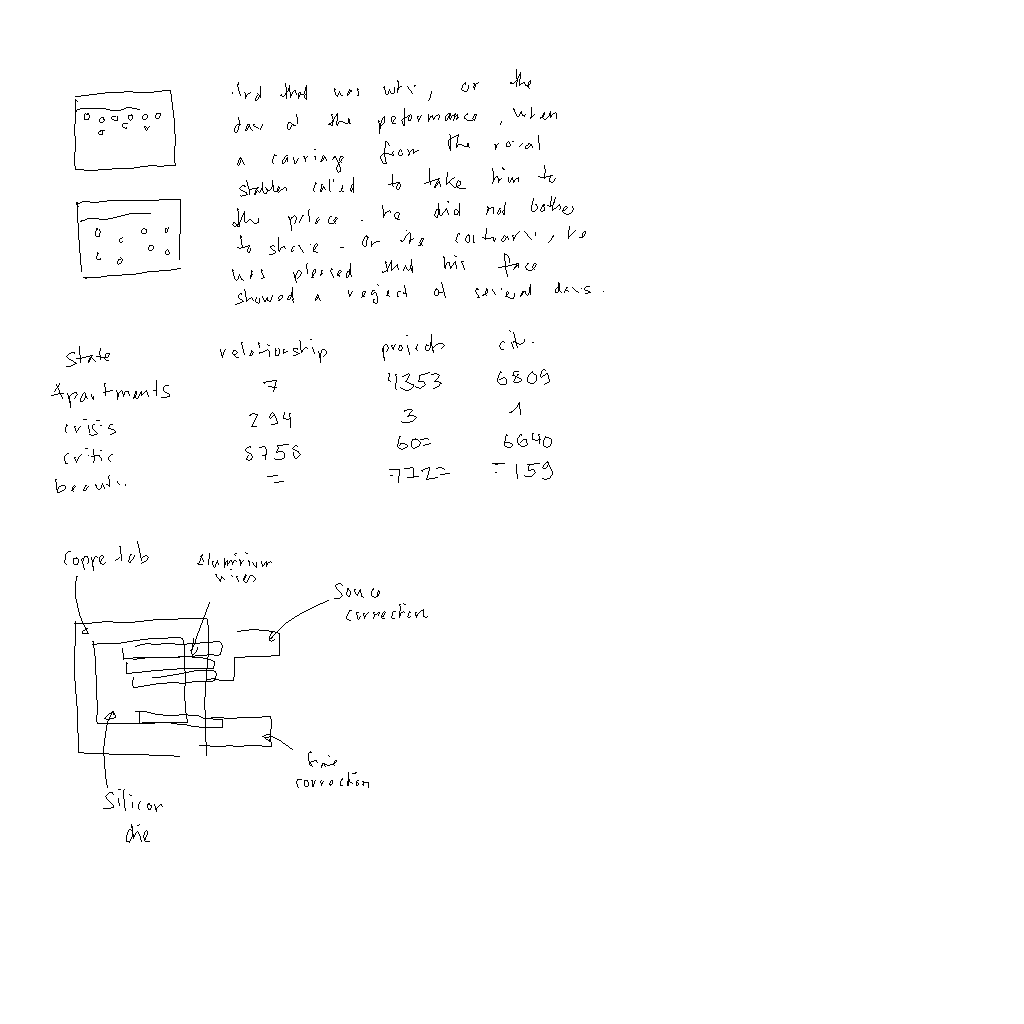 And that was why, on the
day of the peformance, when
a carriage from the royal
stables called to take him to
the palace. he did not bother
to shave. On the contrary, he
was pleased that his face
showed a neglect of several days.
state relationship projects city
Apartments 7 4353 6809
crisis 294 3 1
critic 8758 60= 6640
beauty = 7722 =159
Copper tab
Aluminium
wires
Source
connection
Gate
connection
Silicon
die